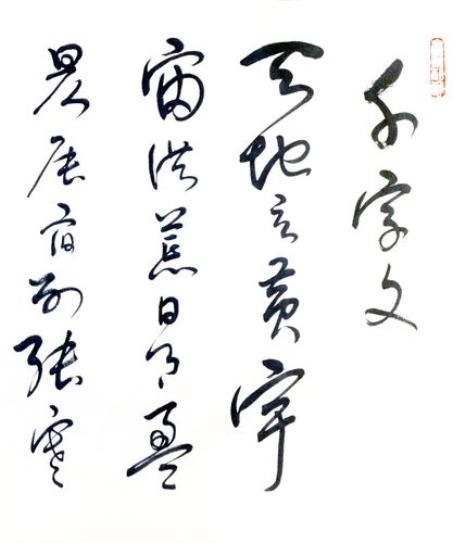 千字文
天地玄黄宇
宙洪荒日月盈
昃辰宿列張寒